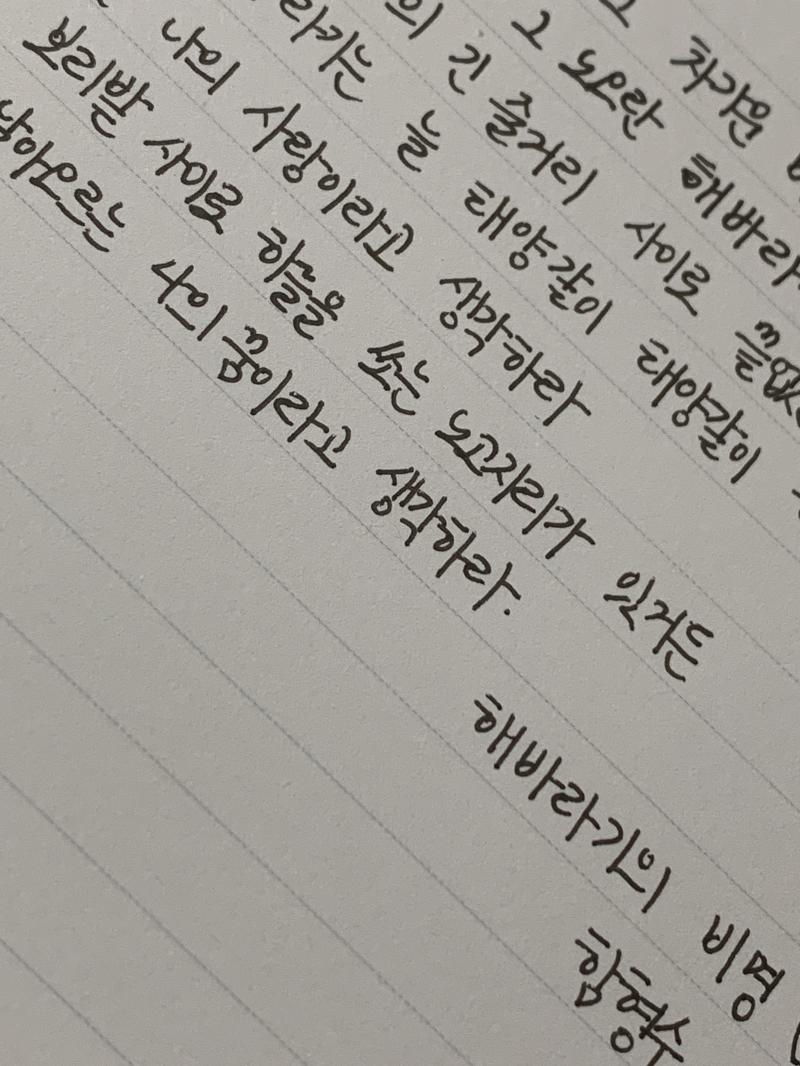 차가운
그 노란 해바라
의 긴 줄거리 사이로 끝없
라기는 늘 태양같이 태양같이
나의 사랑이라고 생각하라
보리밭 사이로 하늘을 쏘는 노고지리가 있거든
아오르는 나의 꿈이라고 생각하라.
해바라기의 비명
함형수